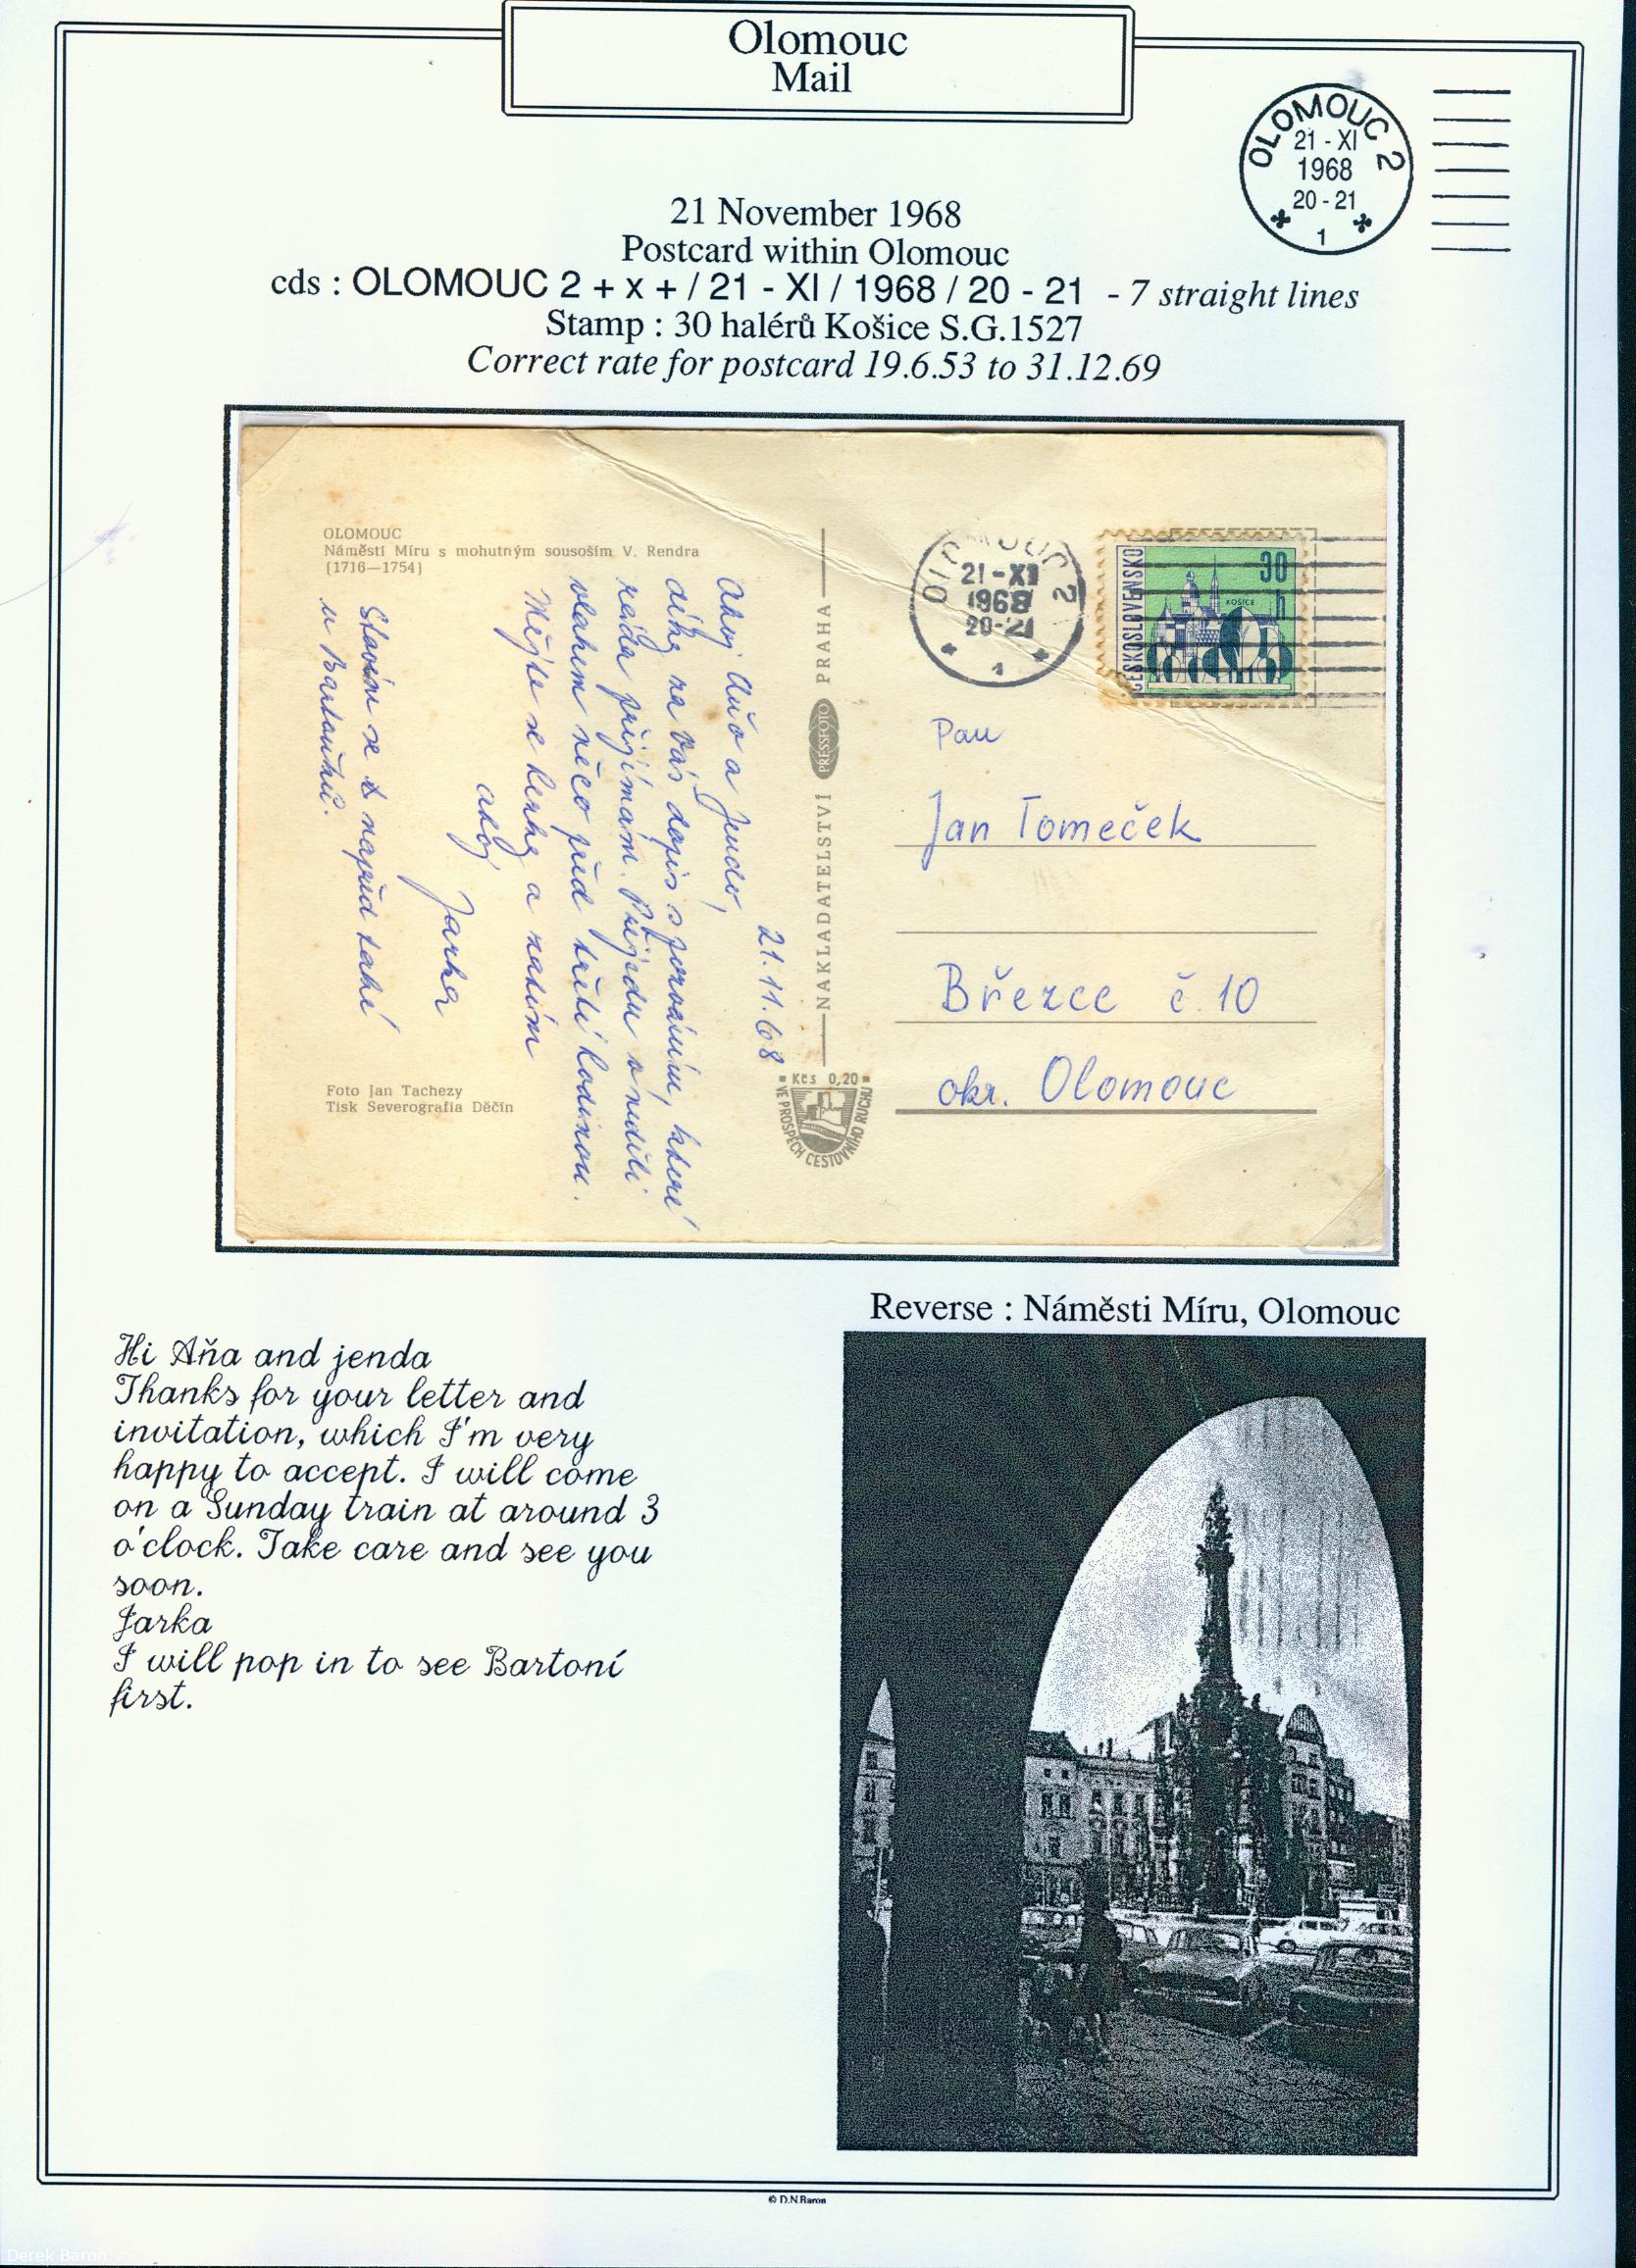 Olomouc
Mail
OLOMOUC 2
21 - XI
1968
20 - 21
1
21 November 1968
Postcard within Olomouc
cds : OLOMOUC 2 + x + / 21 - XI / 1968 / 20 - 21 - 7 straight lines
Stamp : 30 halérů Košice S.G.1527
Correct rate for postcard 19.6.53 to 31.12.69
OLOMOUC
Náměstí Míru s mohutným sousoším V. Rendra
(1716—1754)
21.11.68
Ahoj Aňo a Jendo,
díky za Váš dopis s pozváním, které
ráda přijímám. Přijedu v neděli
vlakem něco před třetí hodinou.
Mějte se hezky a zatím
ahoj
Jarka
Stavím se napřed také
u Bartoňů.
Foto Jan Tachezy
Tisk Severografia Děčín
NAKLADATELSTVÍ PRESSFOTO PRAHA
Kčs 0,20
VE PROSPĚCH CESTOVNÍHO RUCHU
OLOMOUC 2
21-XI
1968
20-21
1
ČESKOSLOVENSKO
30
h
KOŠICE
Pan
Jan Tomeček
Březce č. 10
okr. Olomouc
Reverse : Náměsti Míru, Olomouc
Hi Aňa and jenda
Thanks for your letter and
invitation, which I'm very
happy to accept. I will come
on a Sunday train at around 3
o'clock. Take care and see you
soon.
Jarka
I will pop in to see Bartoní
first.
© D.N.Baron
Derek Baron